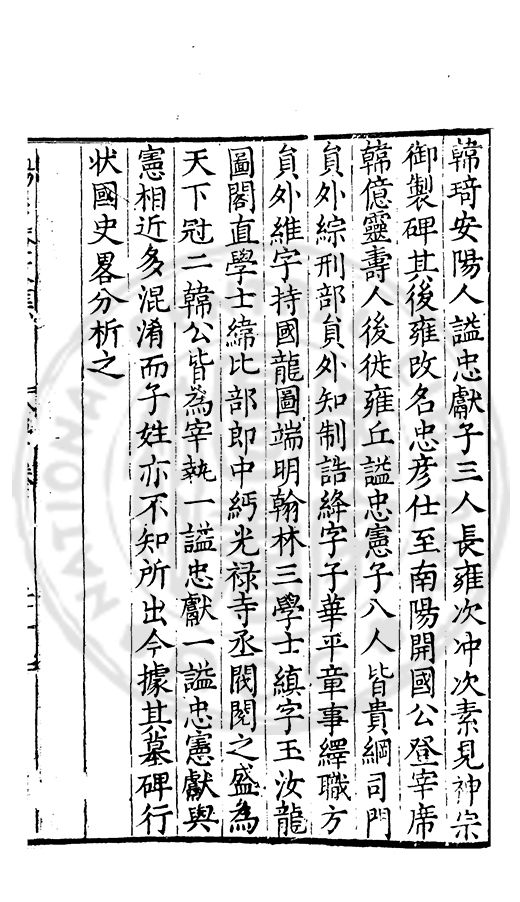 韓琦安陽人諡忠獻子三人長雍次冲次素見神宗
御製碑其後雍改名忠彥仕至南陽開國公登宰席
韓億靈壽人後徙雍丘諡忠憲子八人皆貴綱司門
負外綜刑部負外知制誥絳字子華平章事繹職方
負外維字持國龍圖端明翰林三學士縝字玉汝龍
圖閣直學士緯比部郎中緬光禄寺丞閥閱之盛為
天下冠二韓公皆為宰執一諡忠獻一諡忠憲獻與
憲相近多混淆而子姓亦不知所出今據其墓碑行
状國史畧分析之